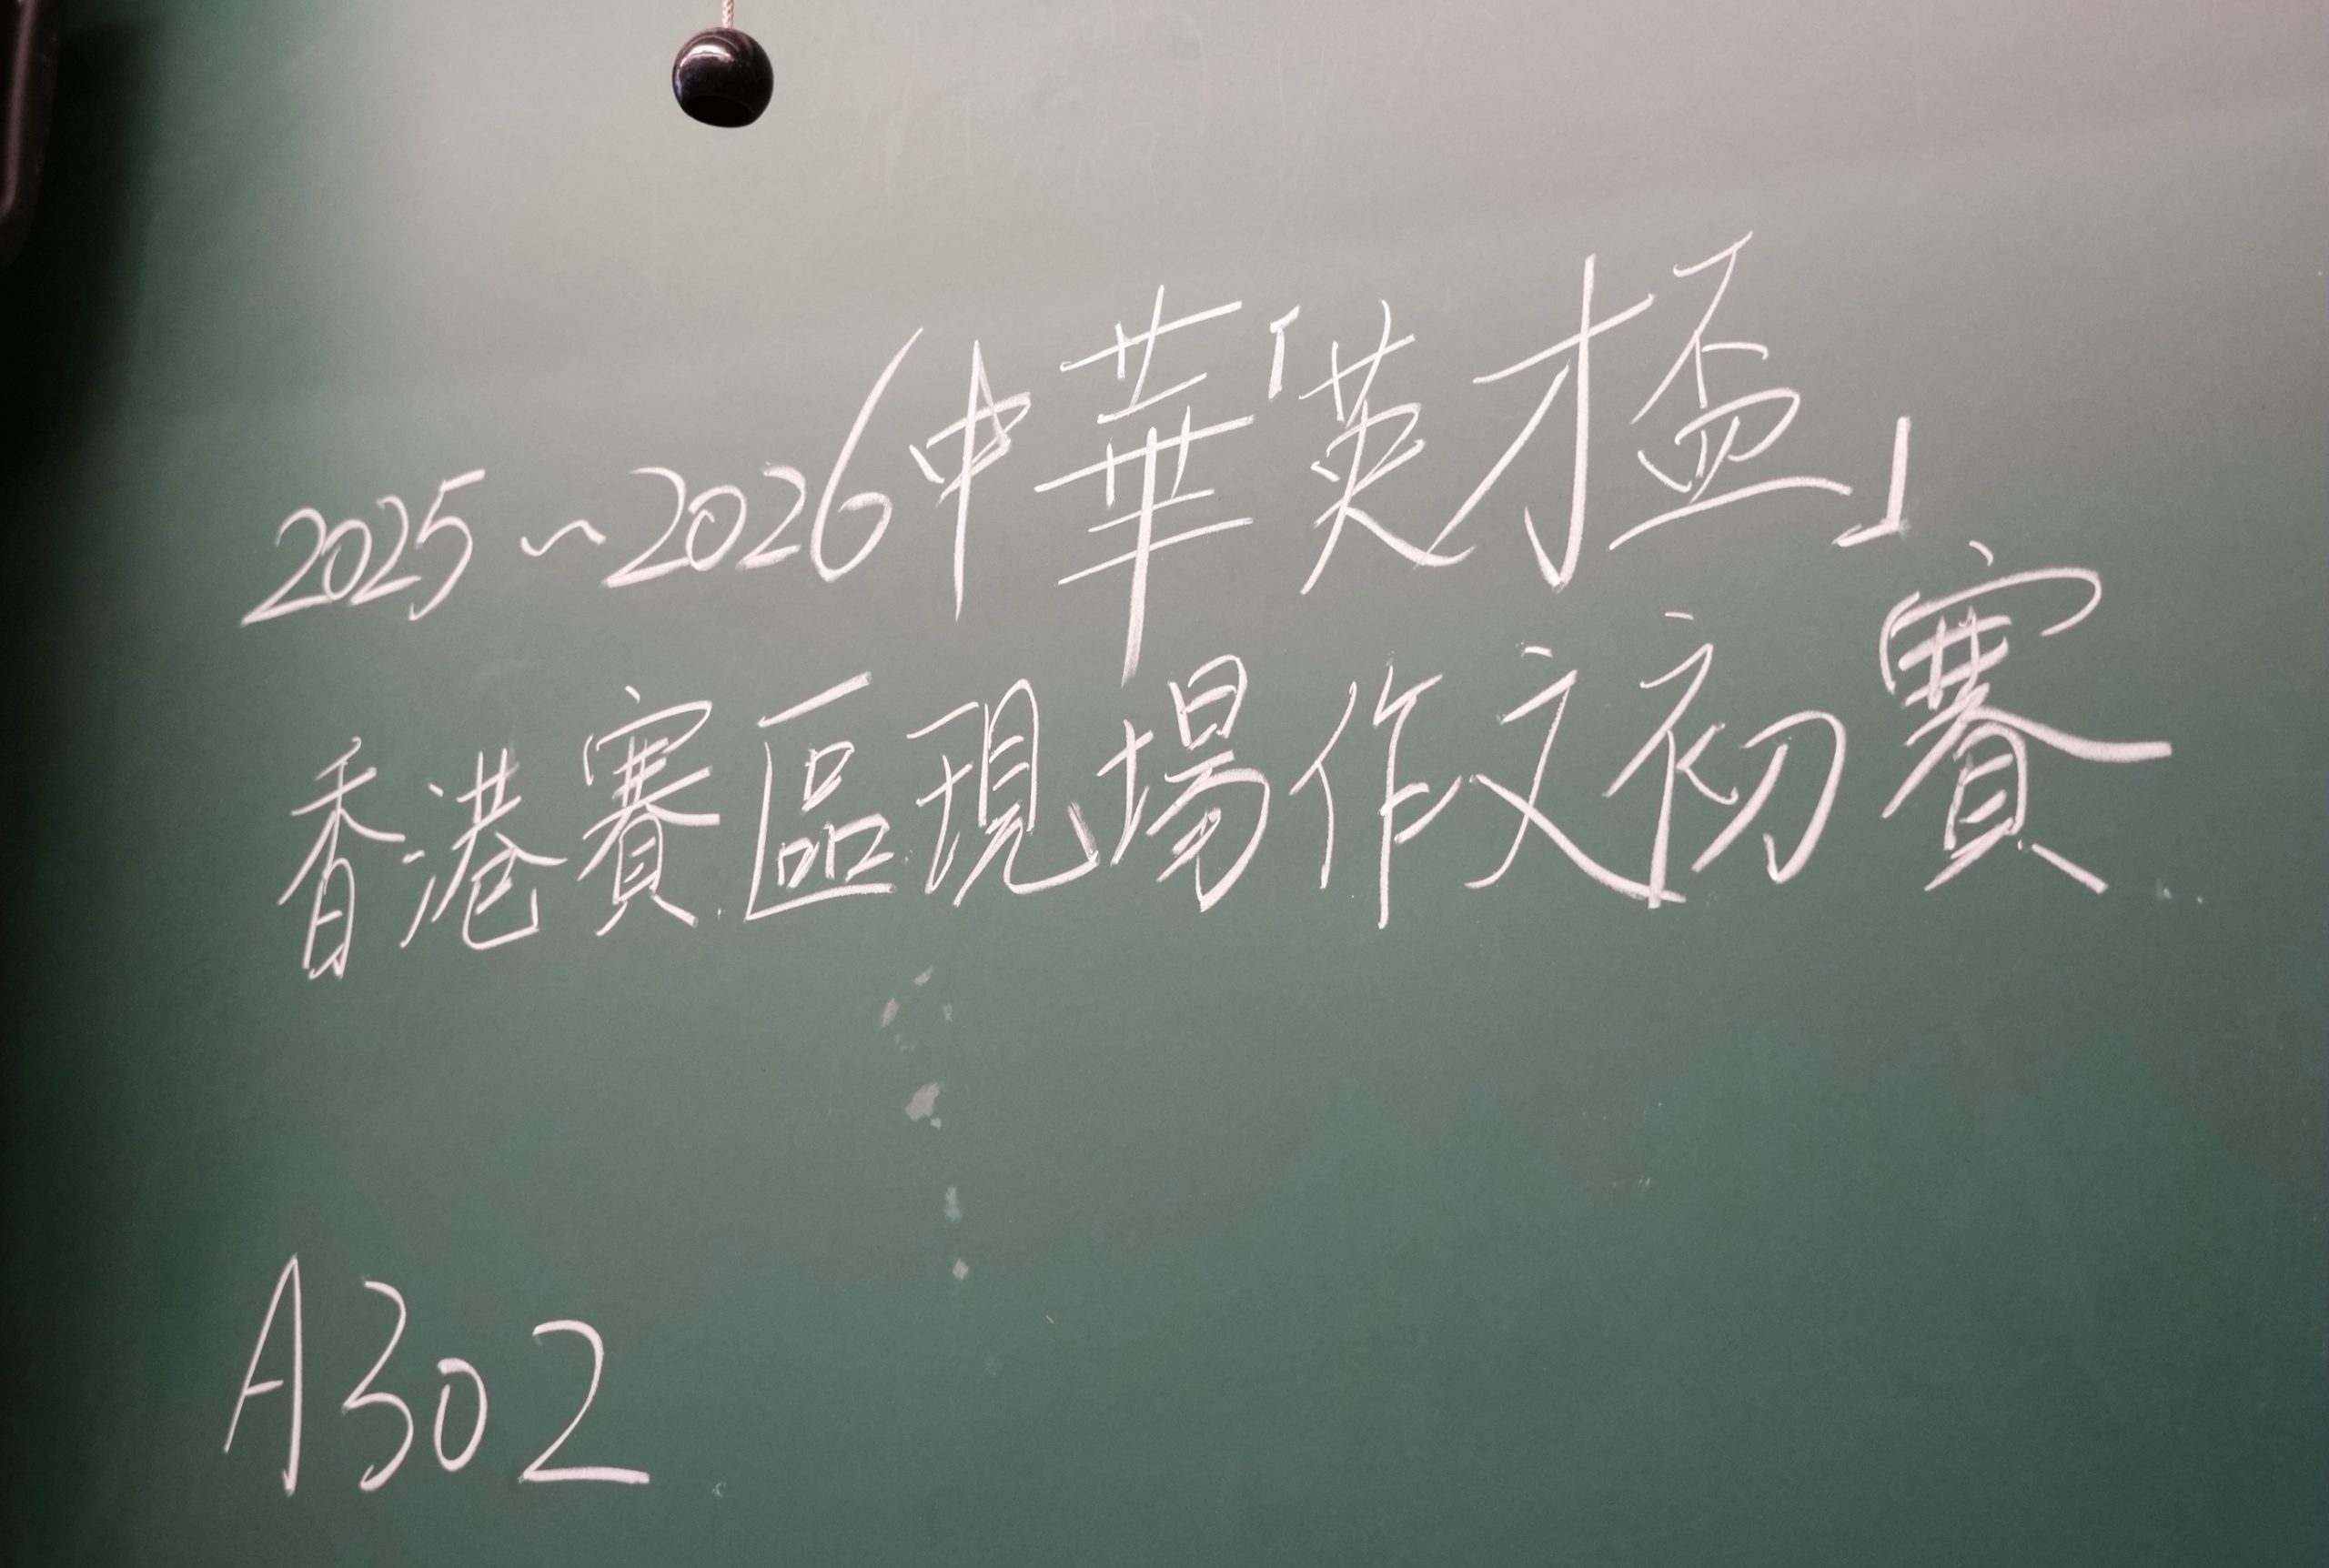 2025~2026中華「英才盃」
香港賽區現場作文初賽
A302